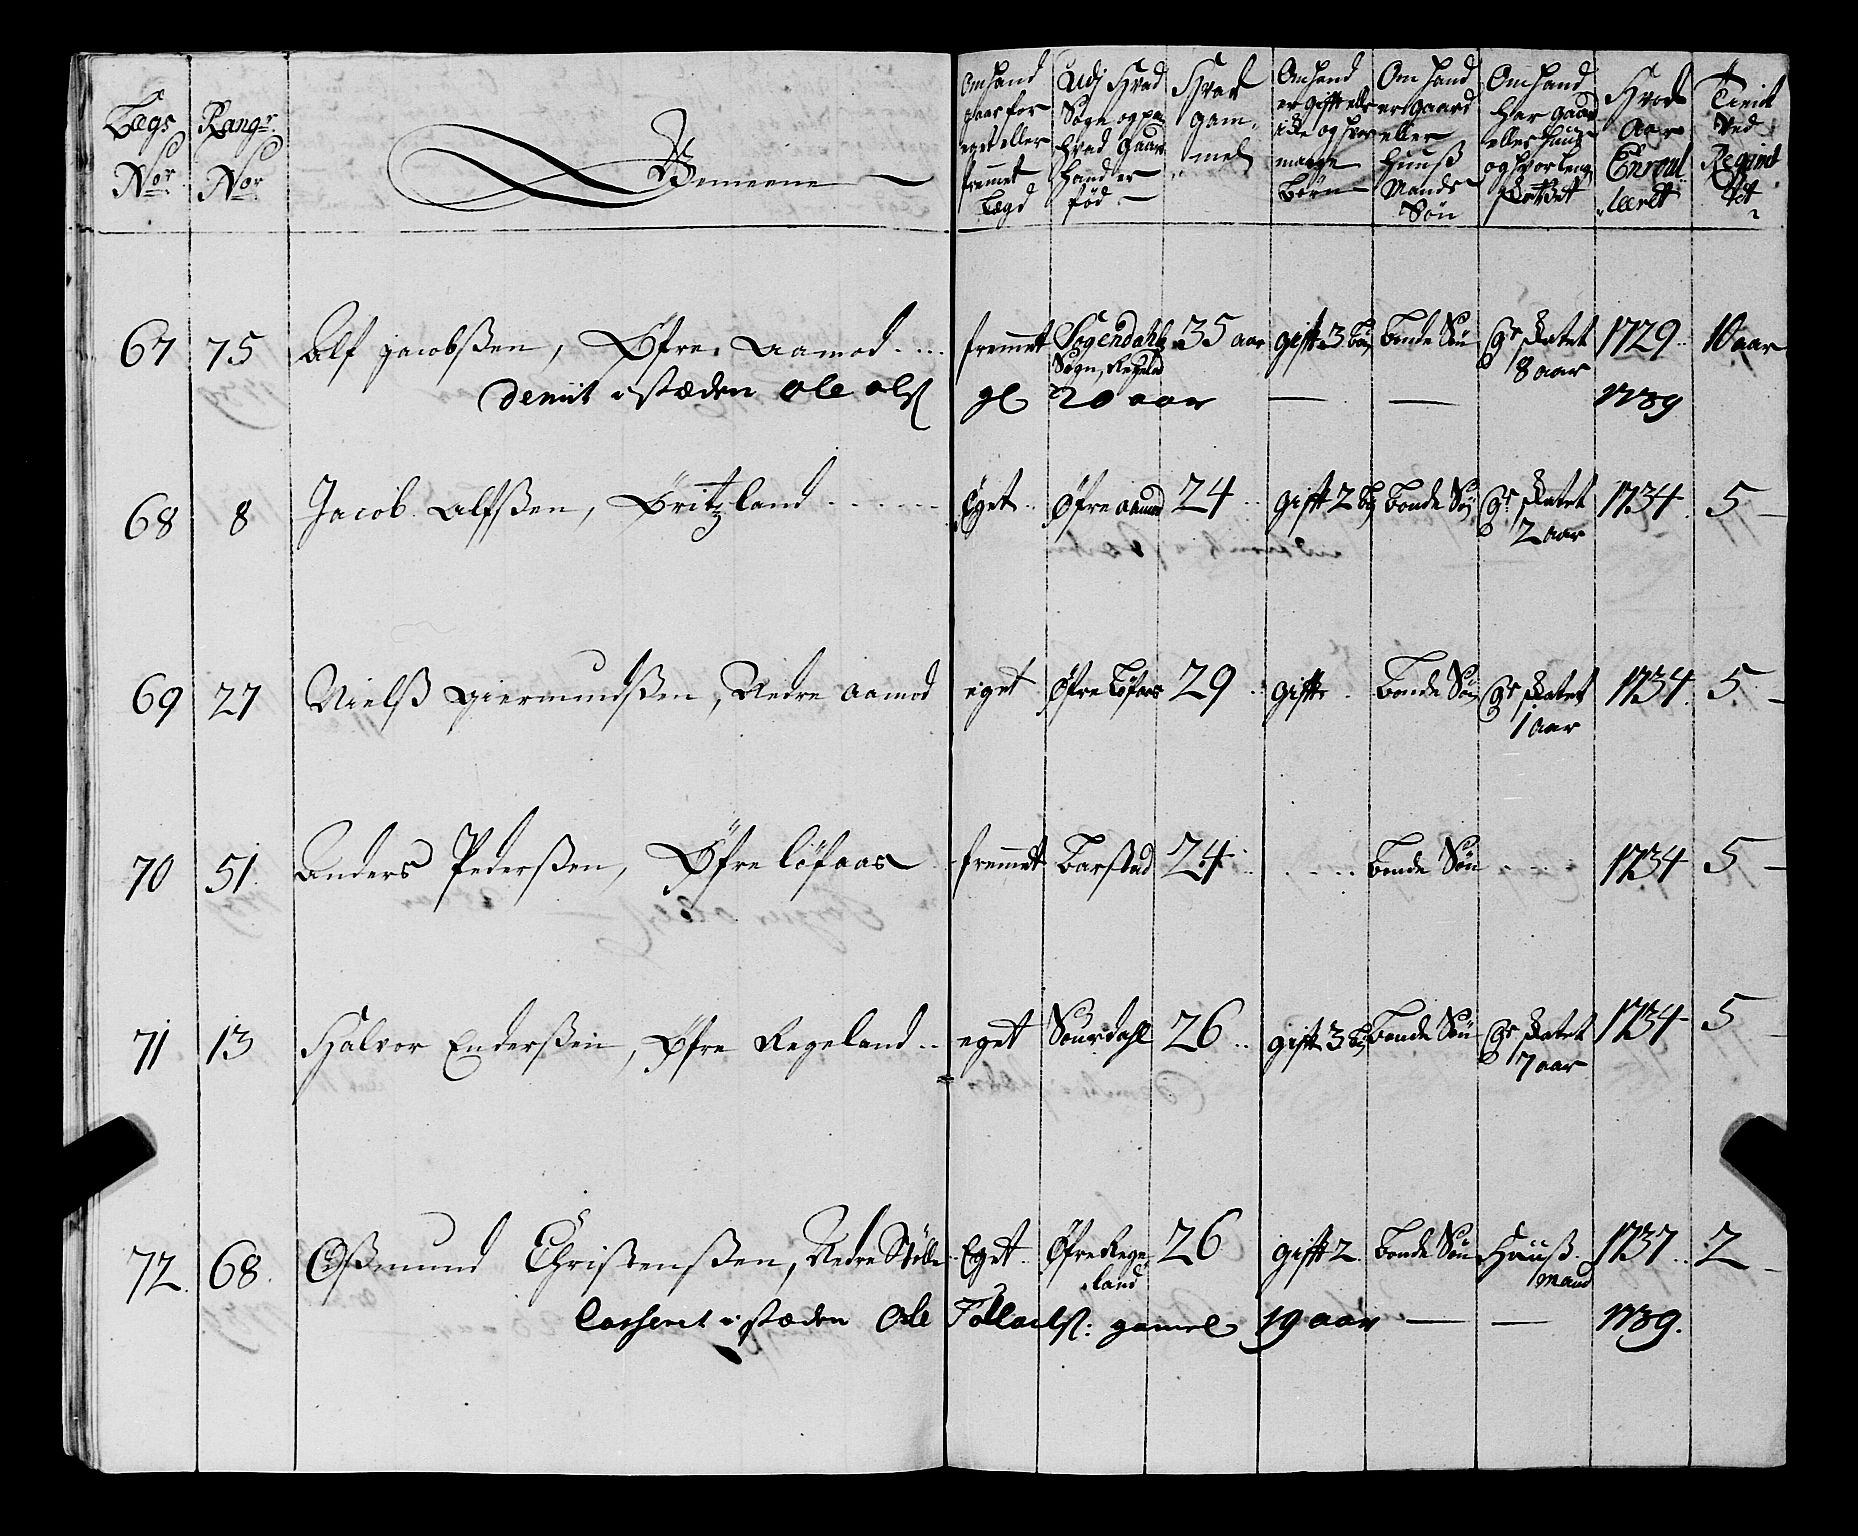 Lægs Nor.
Rangs Nor.
Gemeene
Om hand gaar for eget eller fremmet Lægd
Udj hvad Sogn og paa hvad Gaard Hand er fød
Hvor gammel
Om hand er gift eller icke og hvor mange Børn
Om hand er gaard eller Huuß Mands Søn
Om hand har gaard eller huus og hvor lenge
Hvad Aar Enroulleeret
Tient ved Regimtet
67 75 Alf Jacobßen, Øfre Aamod fremmet Sogendahls Sogn, 35 aar gift 3 Børn Bonde Søn Gr. skatet 8 aar 1729 10 aar
demit i stæden Ole Ols. gl 20 aar — — 1739
68 8 Jacob Alfßen, Øritzland Eget Øfre aamod 24 gift 2 B Bonde Søn Gr. skatet 2 aar 1734 5 —
69 27 Nielß Giermundßen, Nedre aamod eget Øfre Løfaas 29 gift Bonde Søn Gr. skatet 1 aar 1734 5 —
70 51 Anders Pederßen, Øfre Løfaas fremmet Barstad 24 Bonde Søn 1734 5 —
71 13 Halvor Enderßen, Øfre Regeland eget Suurdahl 26 gift 3 B Bonde Søn Gr. skatet 7 aar 1734 5 —
72 68 Oßmund Christenßen, Nedre Stølle Eget Øfre Regeland 26 gift 2 Bonde Søn Huuß mand 1737 2 —
Casseret i stæden Ole Tollacks: gamel 19 aar — — 1739.